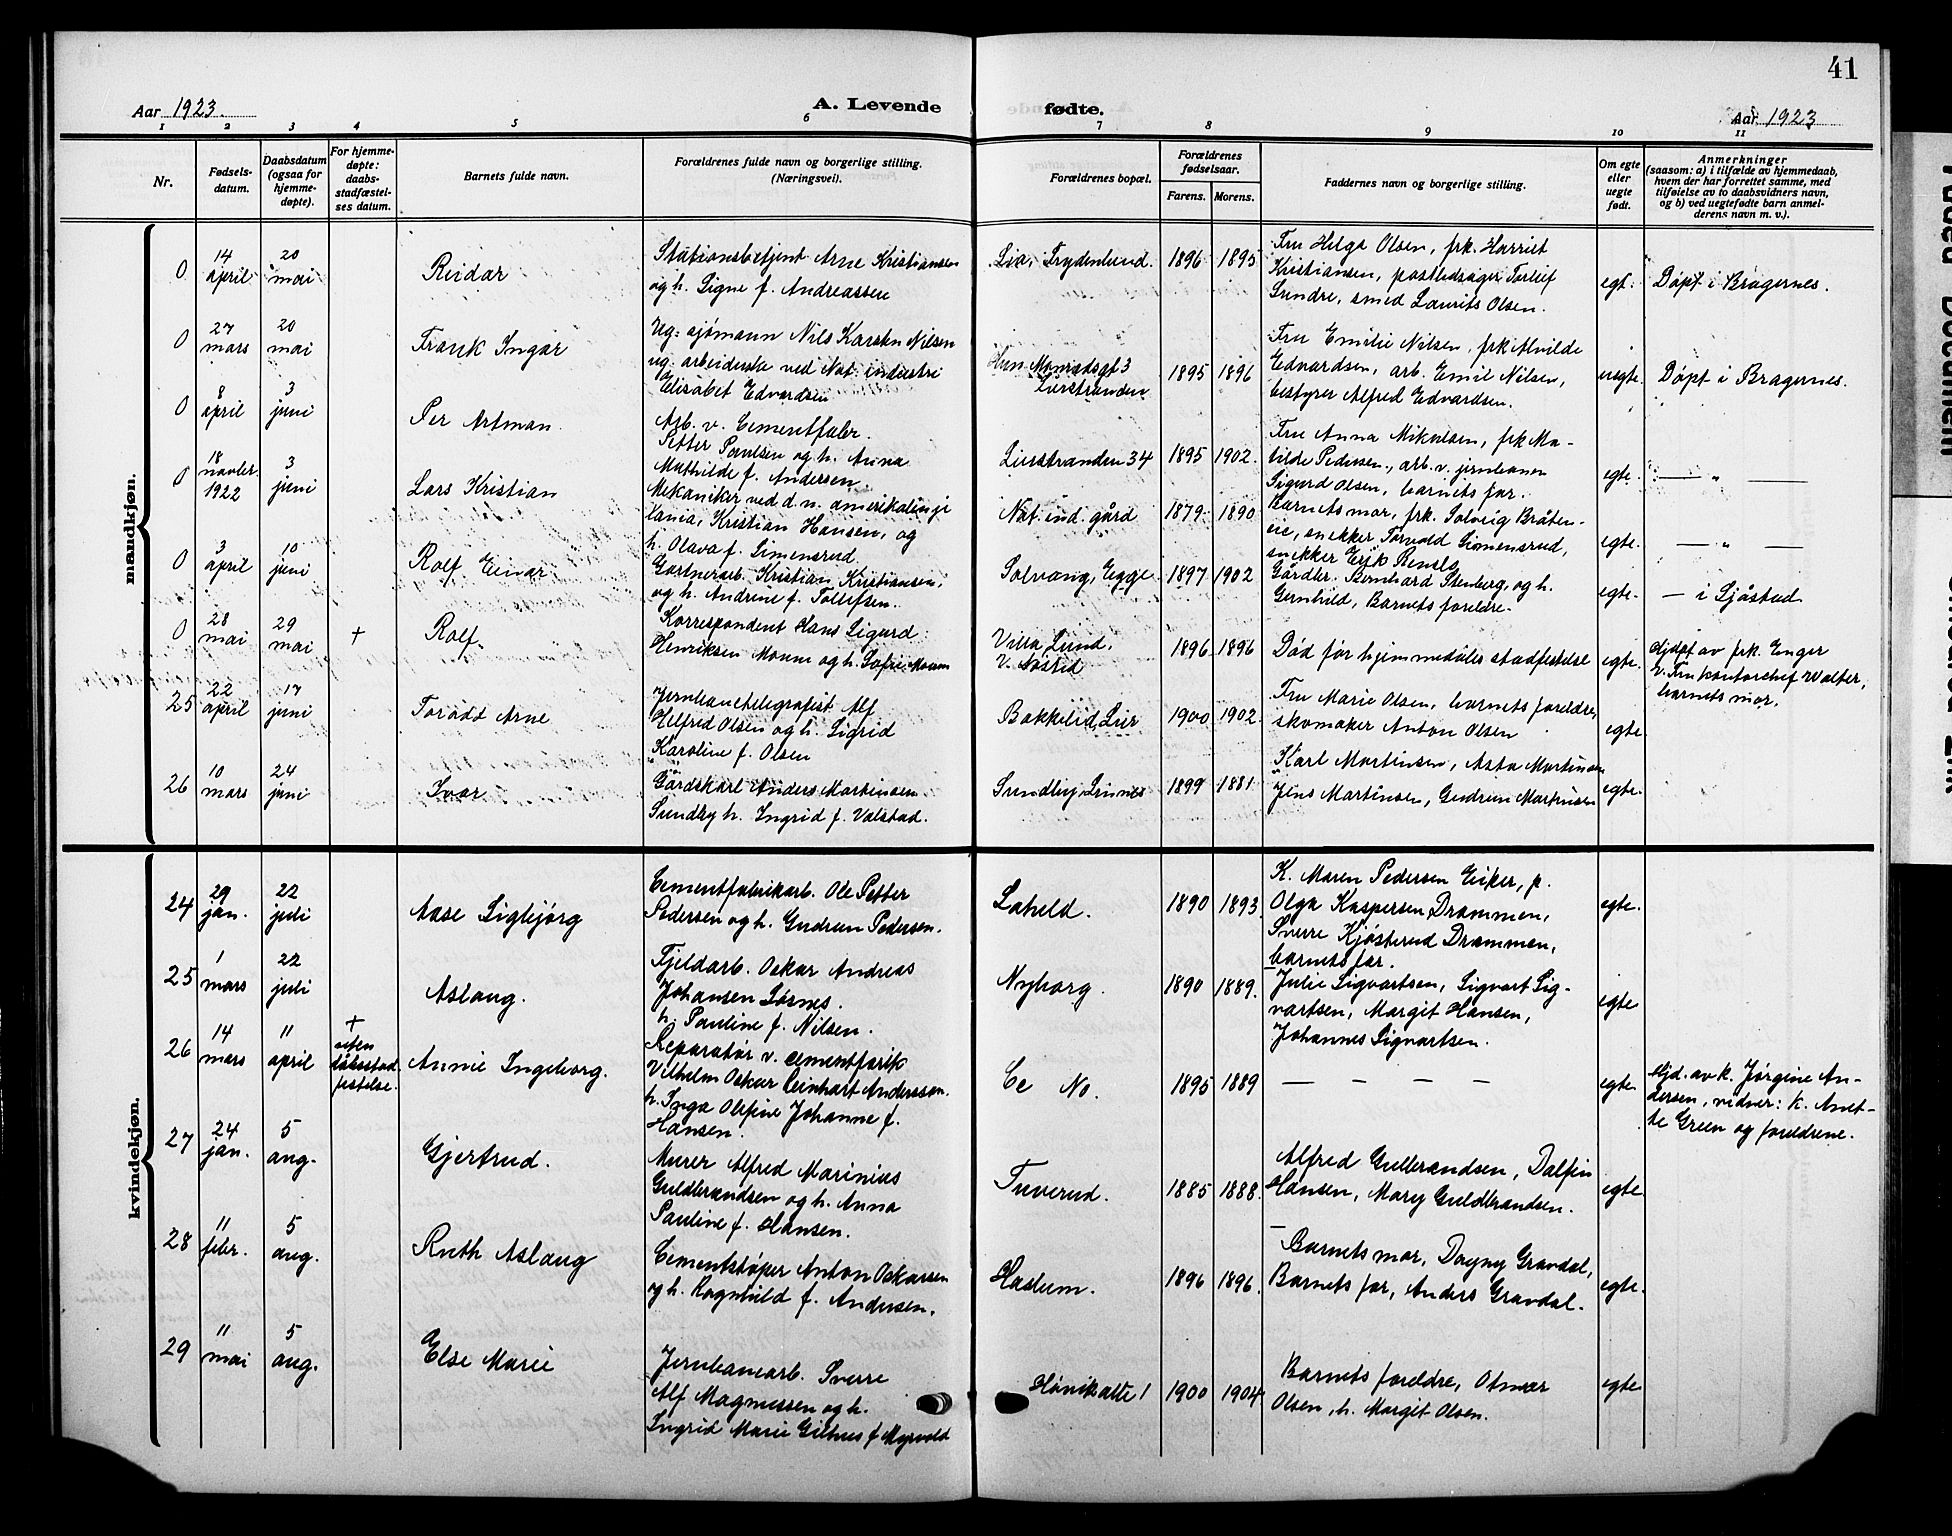 41
Aar 1923.
A. Levende
fødte.
Aar 1923
1 2 3 4 5 6 7 8 9 10 11
Nr.
Fødsels-
datum.
Daabsdatum
(ogsaa for
hjemme-
døpte).
For hjemme-
døpte:
daabs-
stadfæstel-
ses datum.
Barnets fulde navn.
Forældrenes fulde navn og borgerlige stilling.
(Næringsvei).
Forældrenes bopæl.
Forældrenes
fødselsaar.
Farens. Morens.
Faddernes navn og borgerlige stilling.
Om egte
eller
uegte
født.
Anmerkninger
(saasom: a) i tilfælde av hjemmedaab,
hvem der har forrettet samme, med
tilføielse av to daabsvidners navn,
og b) ved uegtefødte barn anmel-
derens navn m. v.).
mandkjøn.
0
14
april
20
mai
Reidar
Stationsbetjent Arne Kristiansen
og h. Signe f. Andreassen
Lia, Frydenlund.
1896 1895
Fru Helga Olsen, frk. Harriet
Kristiansen, postbedsager Torleif
Sundre, smed Laurits Olsen.
egt.
Døpt i Bragernes.
0
27
mars
20
mai
Frank Ingar
Ug. sjømann Nils Karsten Nilsen
ug. arbeiderske ved Nat. industri
Elisabet Edvardsen
Lierstranden
1895 1896
Fru Emilie Nilsen, frk Alvilde
Edvardsen, arb. Emil Nilsen,
bestyrer Alfred Edvardsen.
uegte.
Døpt i Bragernes.
0
8
april
3
juni
Per Artman
Arb. v. Cementfabr.
Petter Paulsen og h. Anna
Mathilde f. Andersen.
Lierstranden 34
1895 1902.
Fru Anna Mikalsen, frk Ma-
tilde Pedersen, arb. v. jernbanen
Sigurd Olsen, barnets far.
egte.
— " —
0
18
novber
1922
3
juni
Lars Kristian
Mekaniker ved d. n. amerikalinje
Kania, Kristian Hansen, og
h. Olava f. Simensrud.
Nat. ind. gård
1879 1890
Barnets mor, frk. Solveig Bråten-
eie, snekker Torvald Simensrud,
snekker Erik
egte.
— " —
0
3
april
10
juni
Rolf Einar
Gartnerarb. Kristian Kristiansen,
og h. Andrine f. Tollefsen.
Solvang, Egge
1897 1902
Gårdbr. Bernhard Stenberg, og h.
Gunhild, Barnets foreldre.
egte.
— i Sjåstad
0
28
mai
29
mai
+
Rolf
Korrespondent Hans Sigurd
Henriksen Moum og h. Sofie Moum
Villa Lund,
1896 1896
Død før hjemmedåbs stadfestelse
egte.
Hjdøpt av frk. Enger
v. Fru kontorchef Walter,
barnets mor.
25
22
april
17
juni
Torodd Arne
Jernbanetelegrafist Alf
Hilfred Olsen og h. Sigrid
Karoline f. Olsen
Bakkelid, Lier
1900 1902.
Fru Marie Olsen, barnets foreldre,
skomaker Anton Olsen
egte
26
10
mars
24
juni
Ivar
Gårdskarl Anders Martinsen
Sundby h. Ingrid f. Valstad.
Sundby, Linnes
1899 1881
Karl Martinsen, Asta Martinsen
Jens Martinsen, Gudrun Martinsen
egte.
kvindekjøn.
24
29
jan.
22
juli
Aase Sigbjørg
Cementfabrikarb. Ole Petter
Pedersen og h. Gudrun Pedersen.
Laheld.
1890 1893.
K. Maren Pedersen Eiker, p.
Olga Kaspersen Drammen,
Sverre Kjøsterud Drammen,
barnets far.
egte.
25
1
mars
22
juli
Aslaug.
Fjeldarb. Oskar Andreas
Johansen Løsnes.
h. Pauline f. Nilsen.
Nyborg.
1890 1889.
Julie Sigvartsen, Sigvart Sig-
vartsen, Margit Hansen,
Johannes Sigvartsen.
egte
26
14
mars
11
april
+
uten
dåbsstad-
festelse.
Annie Ingeborg.
Reparatør v. cementfabrik
Vilhelm Oskar Leinhart Anderssen.
h. Inga Olefine Johanne f.
Hansen.
Ce No.
1895 1889
— — — —
egte
Hjd. av k. Jørgine An-
dersen, vidner: k. Anet-
te Green og foreldrene.
27
24
jan.
5
aug.
Gjertrud.
Murer Alfred Marinius
Guldbrandsen og h. Anna
Pauline f. Hansen.
Tuverud.
1885 1888.
Alfred Gulbrandsen, Dalfin
Hansen, Mary Guldbrandsen.
egte
28
11
febr.
5
aug.
Ruth Aslaug
Cementstøper Anton Oskarsen
og h. Ragnhild f. Andersen.
Haslum.
1896 1896.
Barnets mor, Dagny Gravdal,
Barnets far, Anders Gravdal.
egte.
29
11
mai
5
aug.
Else Marie
Jernbanearb. Sverre
Alf Magnussen og h.
Ingrid Marie Gilhus f Myrvold
1900 1904
Barnets foreldre, Otmar
Olsen, h. Margit Olsen.
egte